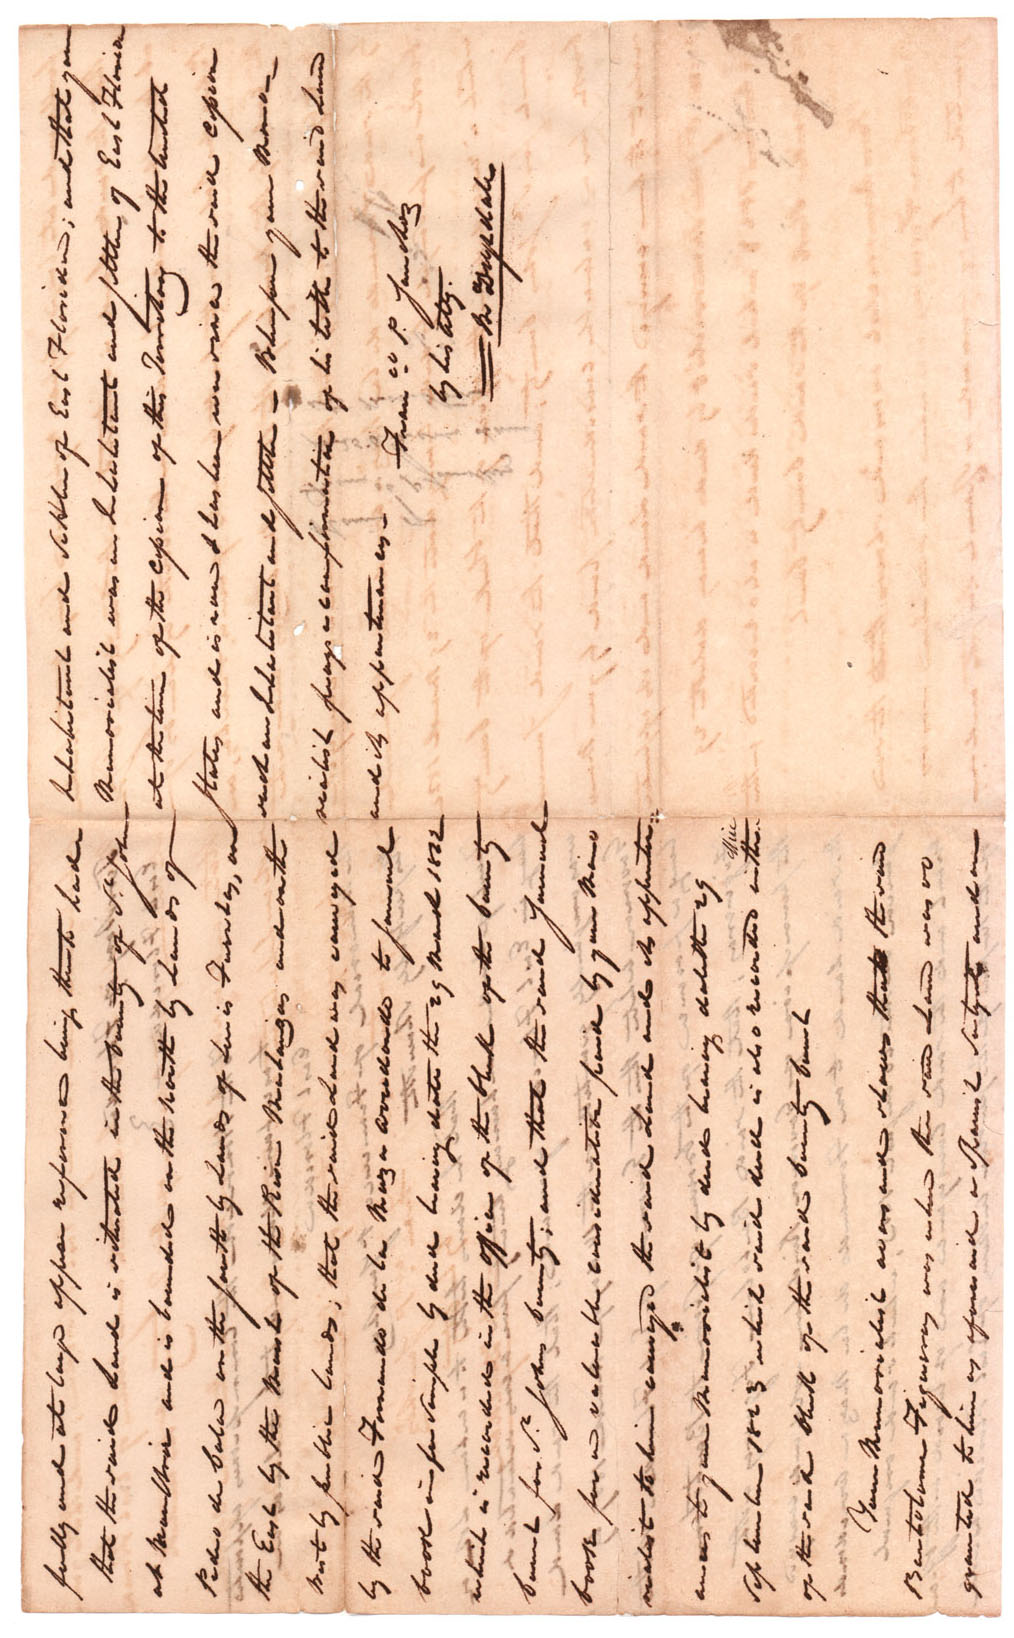 fully and at large appear reference being thereto had
that the said Land is situated in the County of St. Johns
at Matanzas and is bounded on the North by Lands of
Pedro de Cala on the South by Lands of Lewis Fuentes, on
the East by the Marsh of the River Matanzas and on the
West by public lands; that the said Land was conveyed
by the said Fernando de la Maza Arredondo to Samuel
Cook in fee simple by deed bearing date the 29 March 1822
which is recorded in the office of the Clerk of the County
Court for St. Johns County; and that the said Samuel
Cook for a valuable consideration paid by your Memo
rialist to him conveyed the said Land and its appurten
ances to your Memorialist by deed bearing date the 29
September 1823 which said deed is also recorded in the office
of the said Clerk of the said County Court
Your Memorialist avers and shows that the said
Bartolome Figueroy was when the said Land was so
granted to him as aforesaid a Spanish Subject and an
Inhabitant and Settler of East Florida; and that your
Memorialist was an Inhabitant and Settler of East Florida
at the time of the Cession of this Territory to the United
States and is now & has been ever since the said Cession
such an Inhabitant and Settler — Wherefore your Memo
rialist prays a confirmation of his title to the said Land
and its appurtenances —
Franco. P. Sanchez
by his atty.
B Drysdale